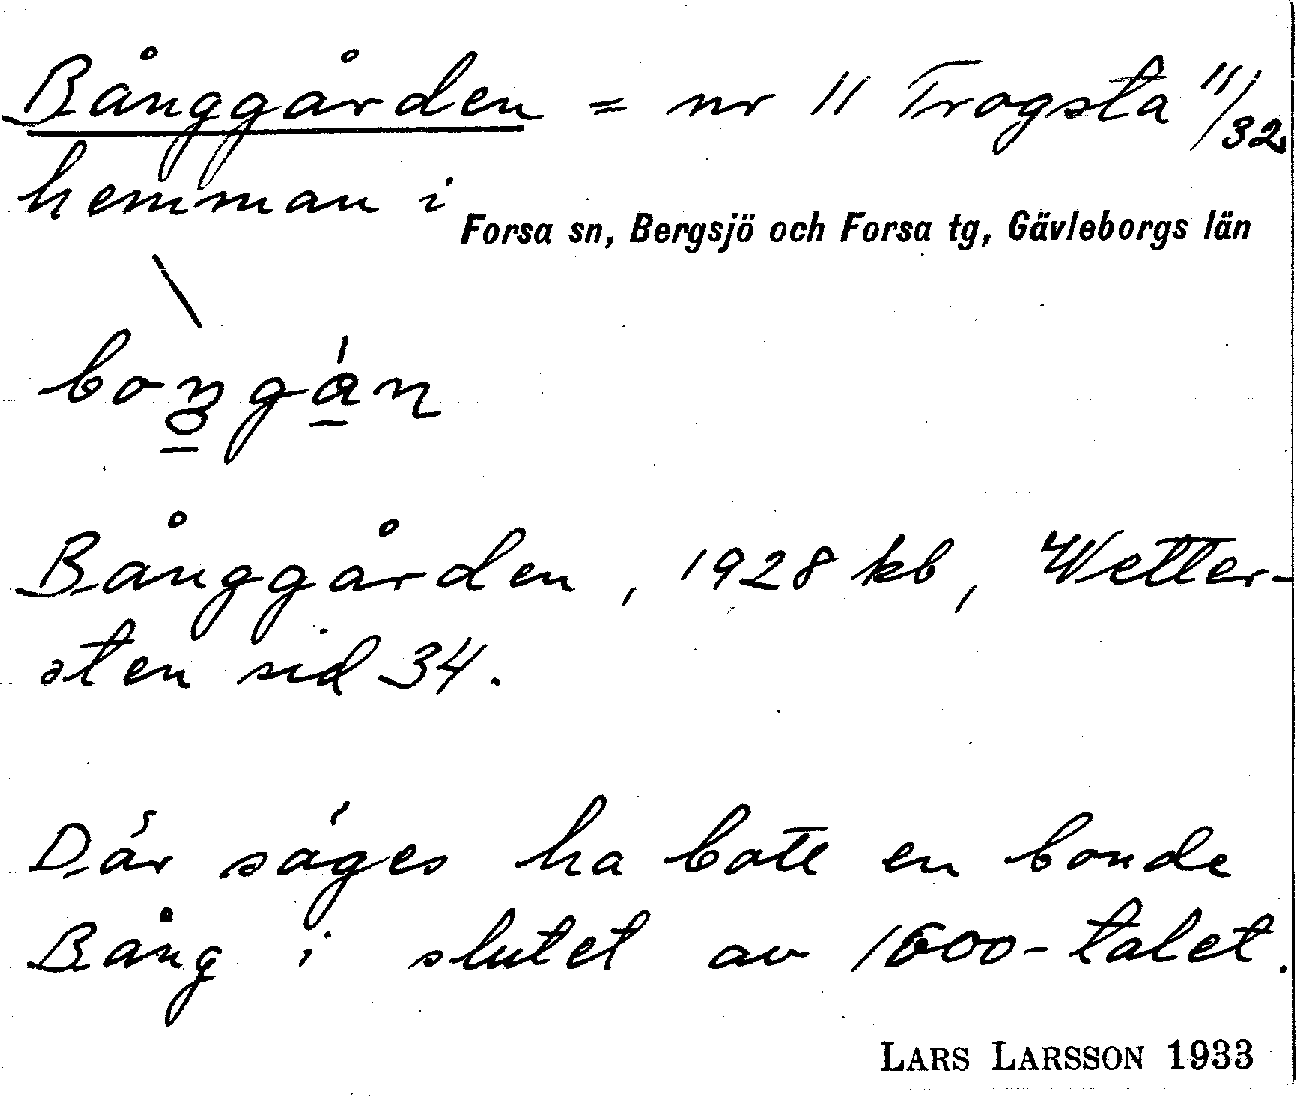 Bånggården = nr 11 Trogsta 11/32
hemman i Forsa sn, Bergsjö och Forsa tg, Gävleborgs län
boŋgán
Bånggården, 1928 kb, Wetter-
sten sid 34.
Där säges ha bott en bonde
Bång i slutet av 1600-talet.
LARS LARSSON 1933